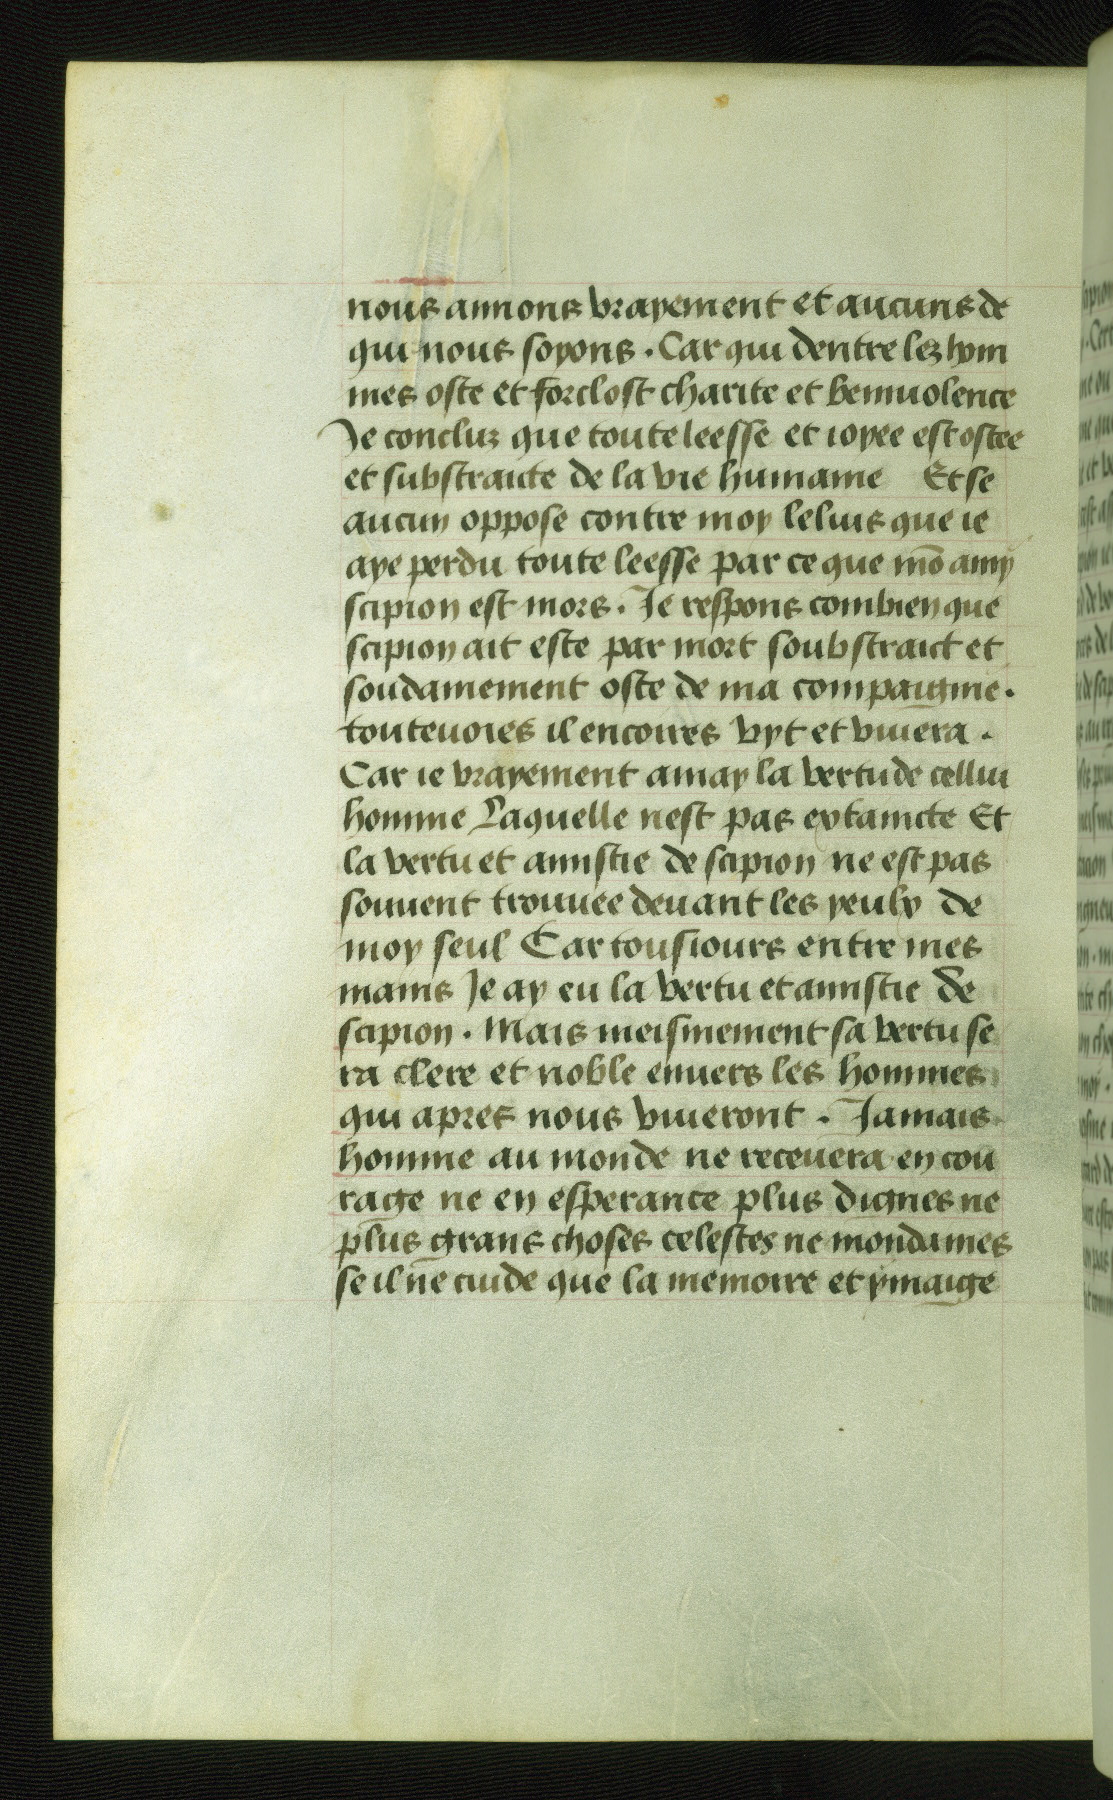 nous amions vrayement et aucuns de
qui nous soyons . Car qui dentre les hom
mes oste et forclost charite et beniuolence
Je concluz que toute leesse et ioyee est ostee
et substraicte de la vie humaine Et se
aucun oppose contre moy lelius que ie
aye perdu toute leesse par ce que mō amy
scipion est mors . Je respons combien que
scipion ait este par mort soubstraict et
soudainement oste de ma compaignie .
touteuoies il encoires vyt et viuera .
Car ie vrayement amay la vertu de cellui
homme Laquelle nest pas extaincte Et
la vertu et amistie de scipion ne est pas
souuent trouuee deuant les yeulx de
moy seul Car tousiours entre mes
mains Je ay eu la vertu et amistie de
scipion . Mais meismement sa vertu se
ra clere et noble enuers les hommes
qui apres nous viueront . Jamais
homme au monde ne receuera en cou
rage ne en esperance plus dignes ne
plus grans choses celestes ne mondaines
se il ne cuide que la memoire et ymaige